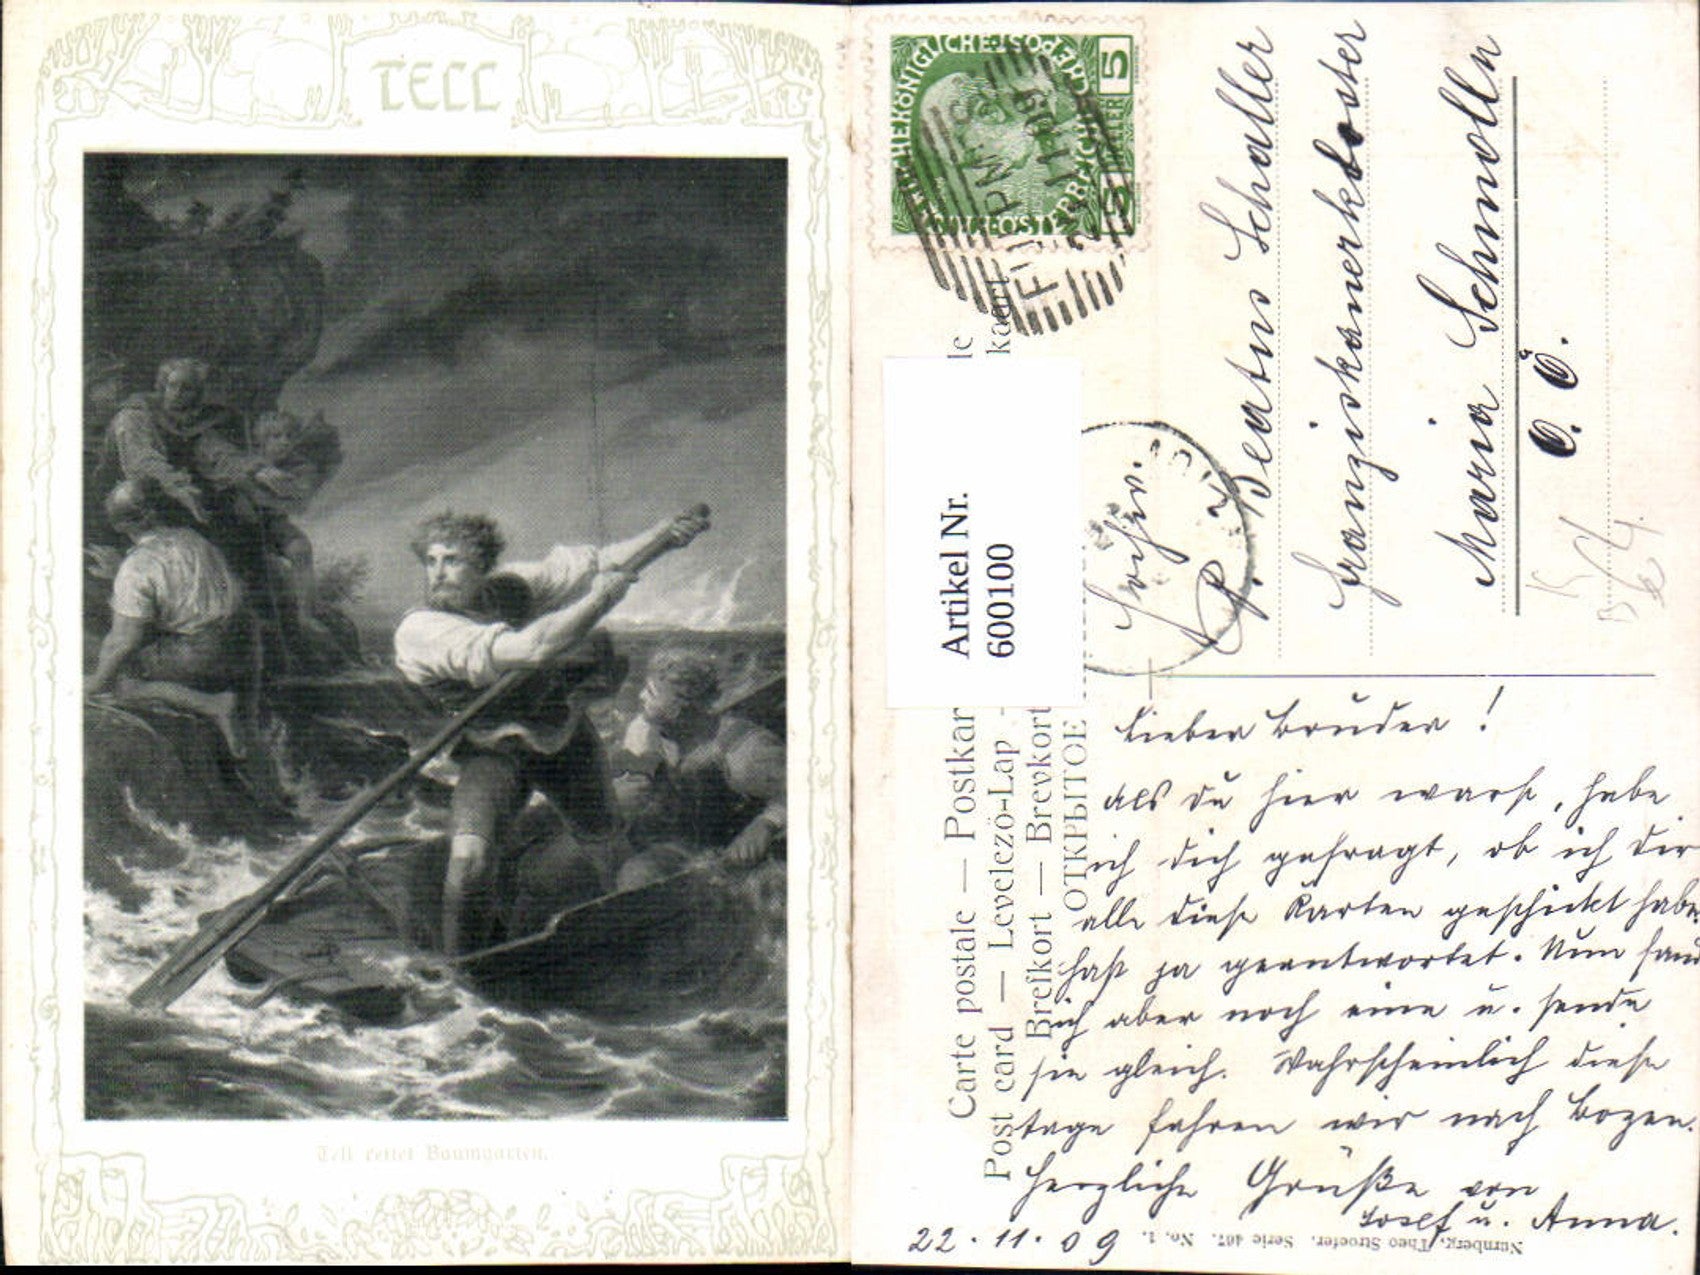 TELL
Tell rettet Baumgarten.
5 HELLER 5
Artikel Nr.
600100
Carte postale — Postkar
Post card — Levelező-Lap -
Brefkort — Brevkort
ОТКРЫТОЕ
kaart
Hochw.
P. Beatus Schaller
Franziskanerkloster
Maria Schmolln
O. Ö.
Lieber Bruder!
Als Du hier warst, habe
ich Dich gefragt, ob ich Dir
alle diese Karten geschickt habe
hast ja geantwortet. Nun fand
ich aber noch eine u. sende
sie gleich. Wahrscheinlich diese
Tage fahren wir nach Bozen.
Herzliche Grüße von
Josef u. Anna.
22.11.09
Nürnberg, Theo Stroefer. Serie 467. No. 1.